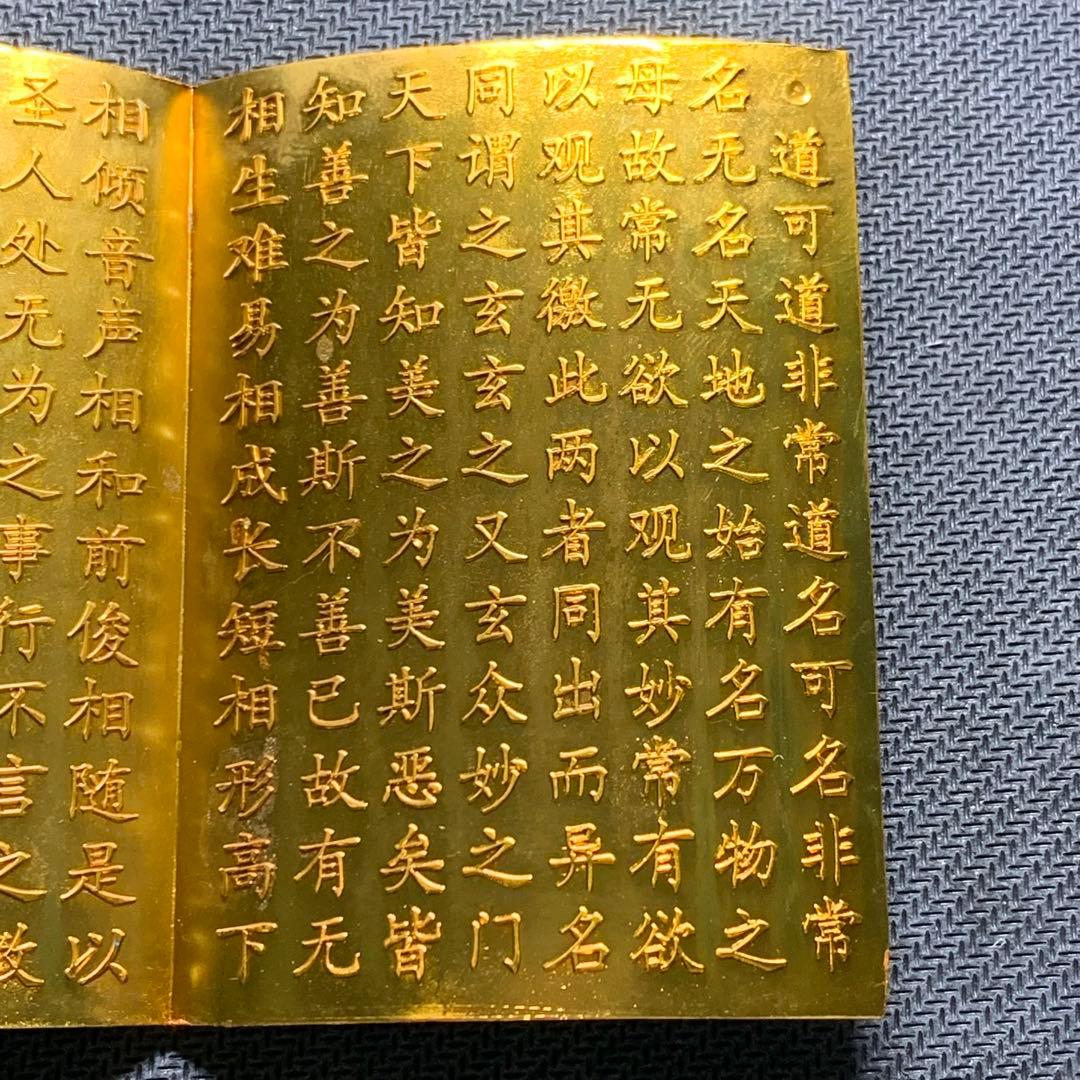 道可道非常道名可名非常
名无名天地之始有名万物之
母故常无欲以观其妙常有欲
以观其徼此两者同出而异名
同谓之玄玄之又玄众妙之门
天下皆知美之为美斯恶矣皆
知善之为善斯不善已故有无
相生难易相成长短相形高下
相倾音声相和前俊相随是以
圣人处无为之事行不言之教